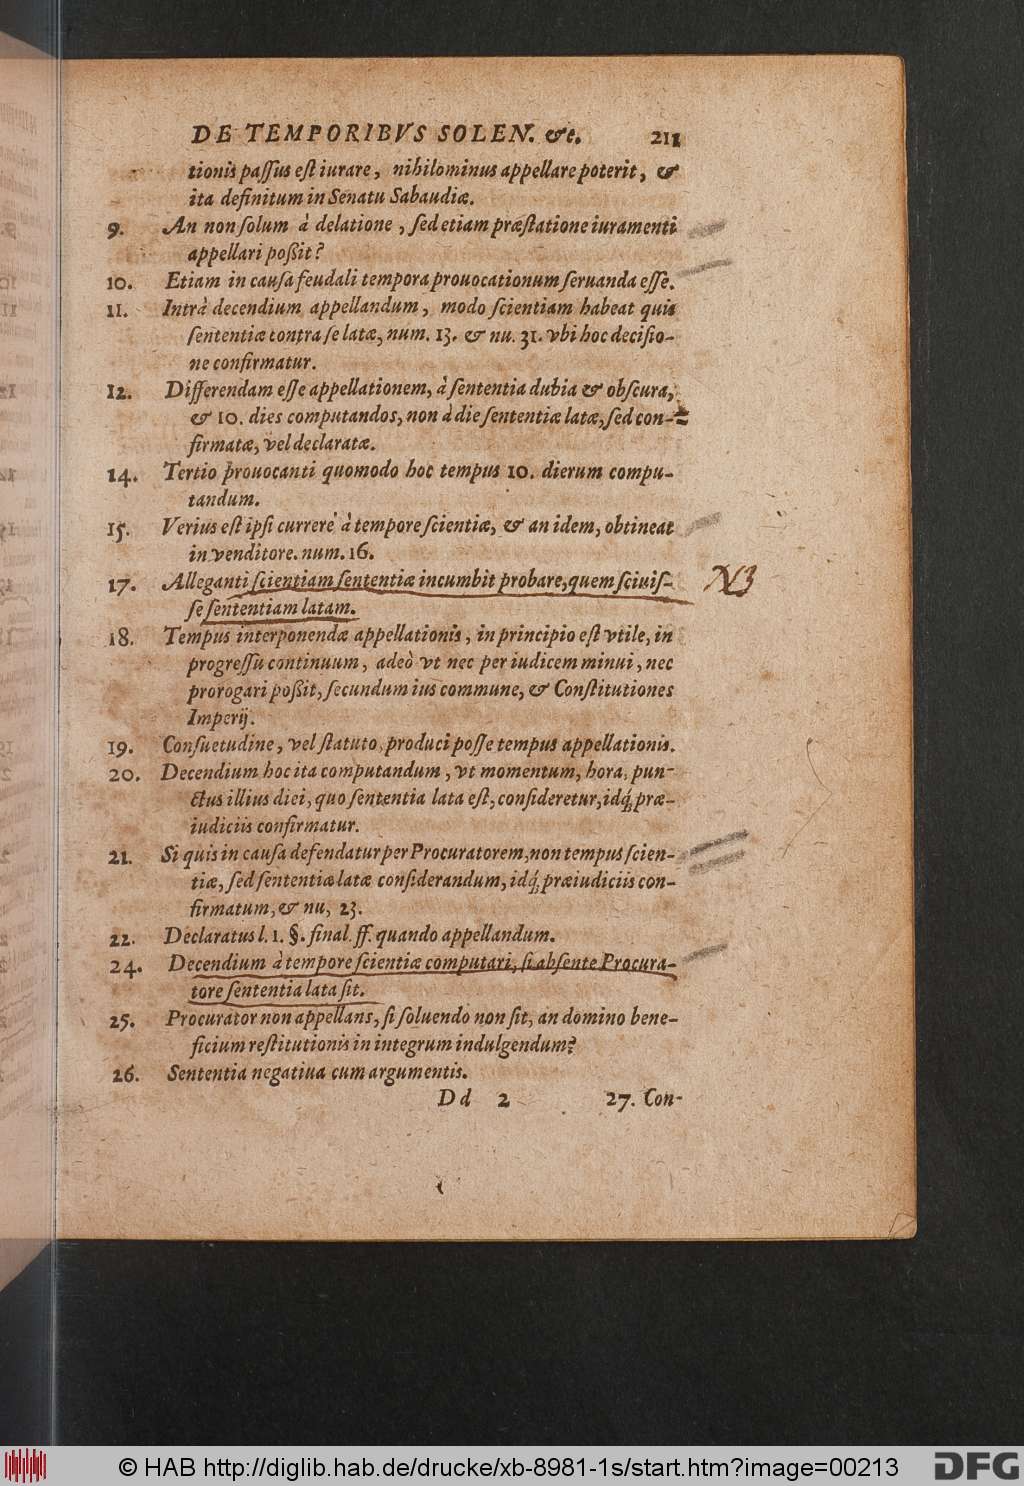 DE TEMPORIBVS SOLEN. &c. 211
tionis paſſus eſt iurare, nihilominus appellare poterit, &
ita definitum in Senatu Sabaudiæ.
9. An non ſolum à delatione, ſed etiam præſtatione iuramenti
appellari poßit?
10. Etiam in cauſa feudali tempora prouocationum ſeruanda eſſe.
11. Intrà decendium appellandum, modo ſcientiam habeat quis
ſententiæ contra ſe latæ, num. 13. & nu. 31. vbi hoc deciſio-
ne confirmatur.
12. Differendam eſſe appellationem, à ſententia dubia & obſcura,
& 10. dies computandos, non à die ſententiæ latæ, ſed con-
firmatæ, vel declaratæ.
14. Tertio prouocanti quomodo hoc tempus 10. dierum compu-
tandum.
15. Verius eſt ipſi currere à tempore ſcientiæ, & an idem, obtineat
in venditore. num. 16.
17. Alleganti ſcientiam ſententiæ incumbit probare, quem ſciuiſ-
ſe ſententiam latam.
18. Tempus interponendæ appellationis, in principio eſt vtile, in
progreſſu continuum, adeò vt nec per iudicem minui, nec
prorogari poßit, ſecundum ius commune, & Conſtitutiones
Imperij.
19. Conſuetudine, vel ſtatuto, produci poſſe tempus appellationis.
20. Decendium hoc ita computandum, vt momentum, hora, pun-
ctus illius diei, quo ſententia lata eſt, conſideretur, idq́; præ-
iudiciis confirmatur.
21. Si quis in cauſa defendatur per Procuratorem, non tempus ſcien-
tiæ, ſed ſententiæ latæ conſiderandum, idq́; præiudiciis con-
firmatum, & nu, 23.
22. Declaratus l. 1. §. final. ff. quando appellandum.
24. Decendium à tempore ſcientiæ computari, ſi abſente Procura-
tore ſententia lata ſit.
25. Procurator non appellans, ſi ſoluendo non ſit, an domino bene-
ficium reſtitutionis in integrum indulgendum?
26. Sententia negatiua cum argumentis.
Dd 2 27. Con-
© HAB http://diglib.hab.de/drucke/xb-8981-1s/start.htm?image=00213
DFG